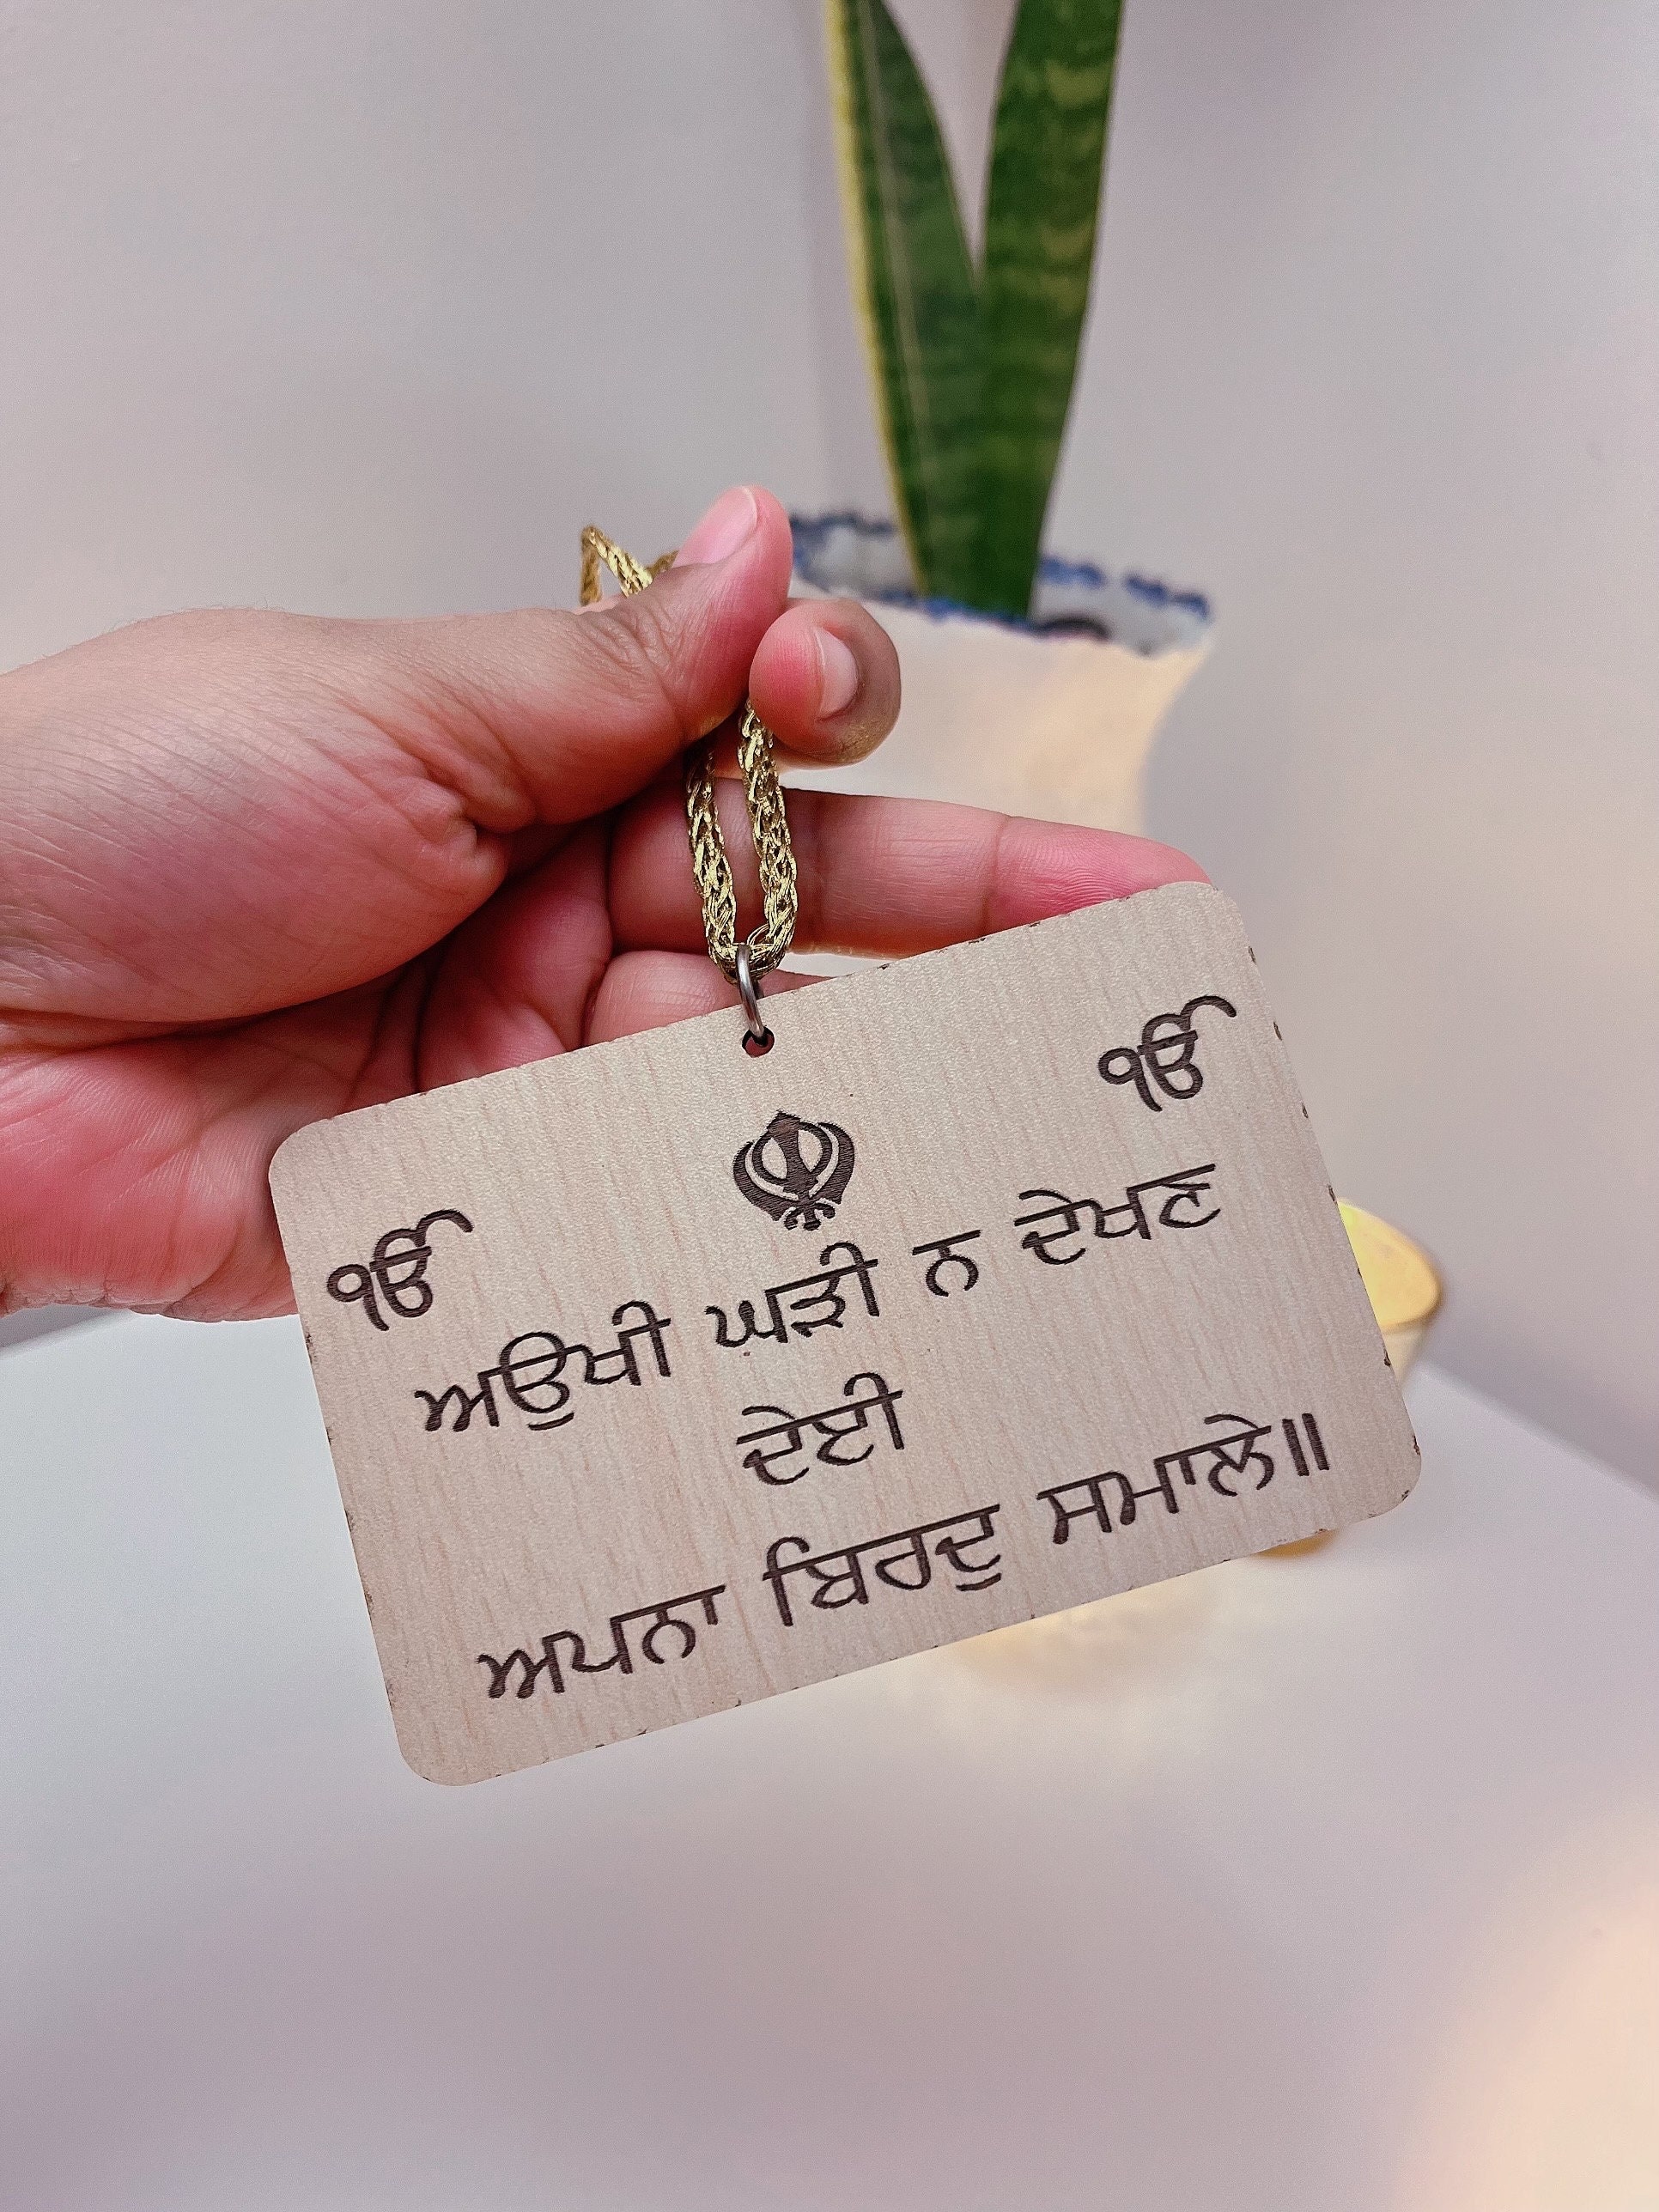 ੴ ੴ
ਅਉਖੀ ਘੜੀ ਨ ਦੇਖਣ
ਦੇਈ
ਅਪਨਾ ਬਿਰਦੁ ਸਮਾਲੇ॥